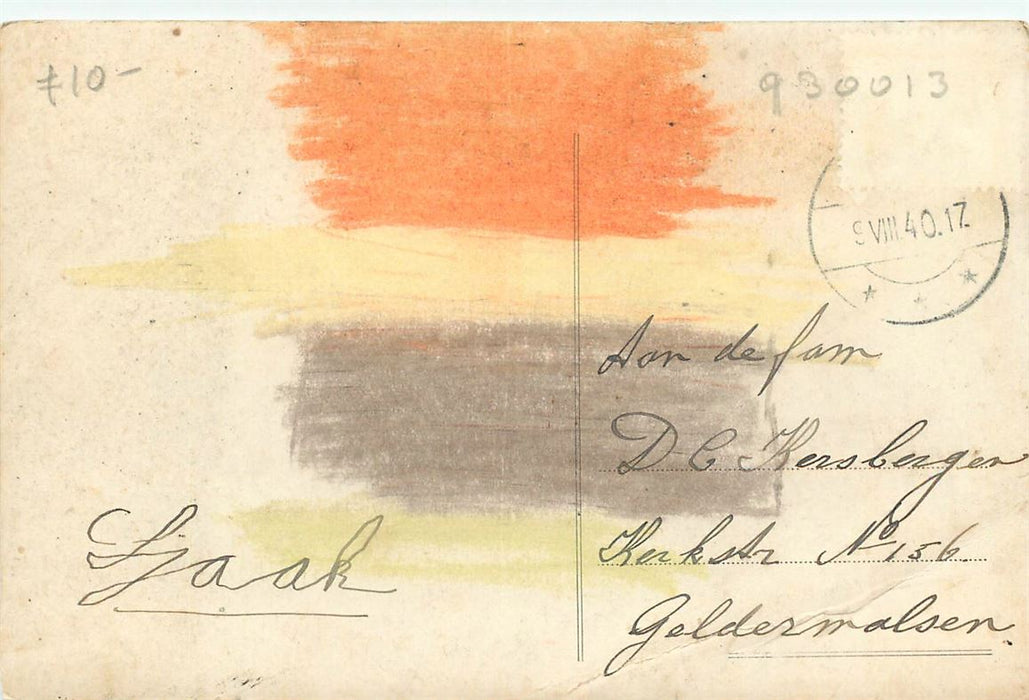 ƒ10-
930013
9 VIII.40.17
Aan de fam
D C Kersbergen
Kerkstr № 156.
Geldermalsen
Sjaak